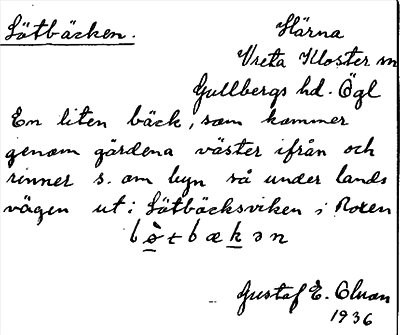 Såtbäcken.
Härna
Vreta Kloster sn
Gullbergs hd. Ögl
En liten bäck, som kommer
genom gärdena väster ifrån och
rinner s. om byn så under lands
vägen ut i Såtbäcksviken i Roxen
Gustaf E.
1936